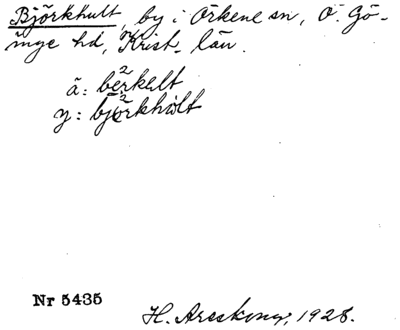 Björkhult, by i Örkene sn, Ö. Gö-
inge hd, Krist. län.
ä: be²rkelt
y: bjö²rkhult
Nr 5435
H. Areskoug, 1928.